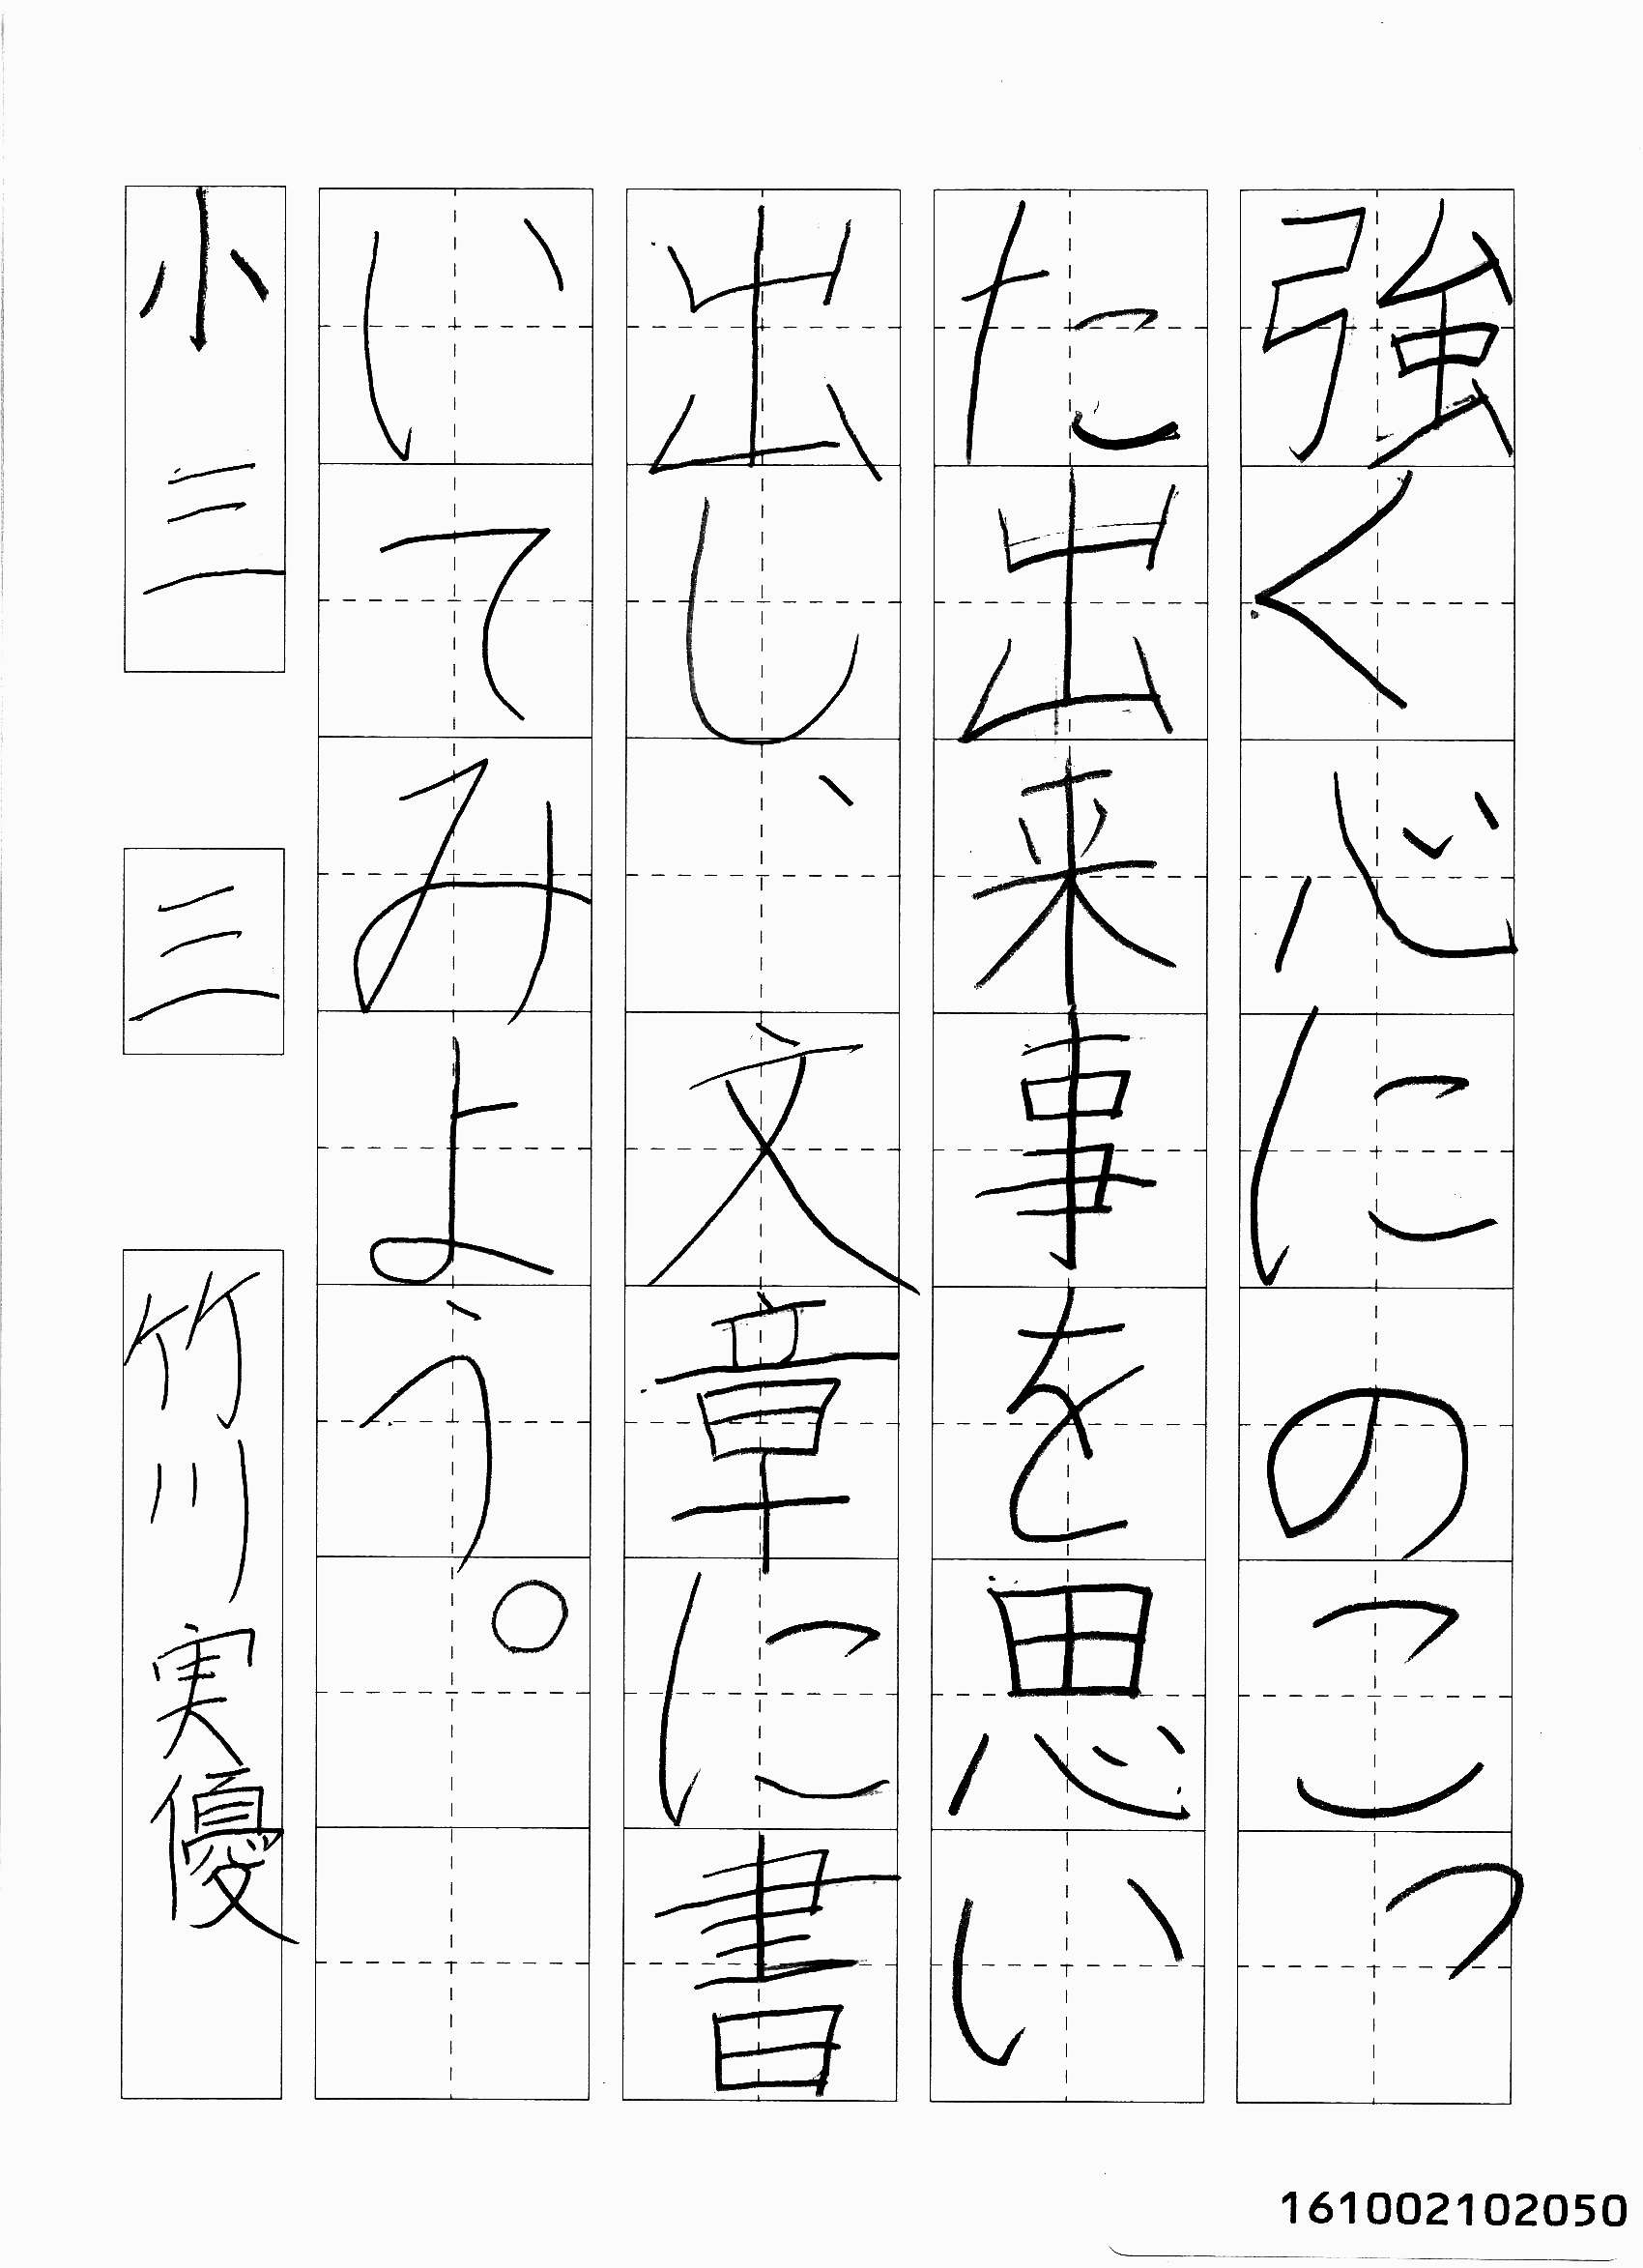 強く心にのこっ
た出来事を思い
出し、文章に書
いてみよう。
小三 三 竹川実優
161002102050